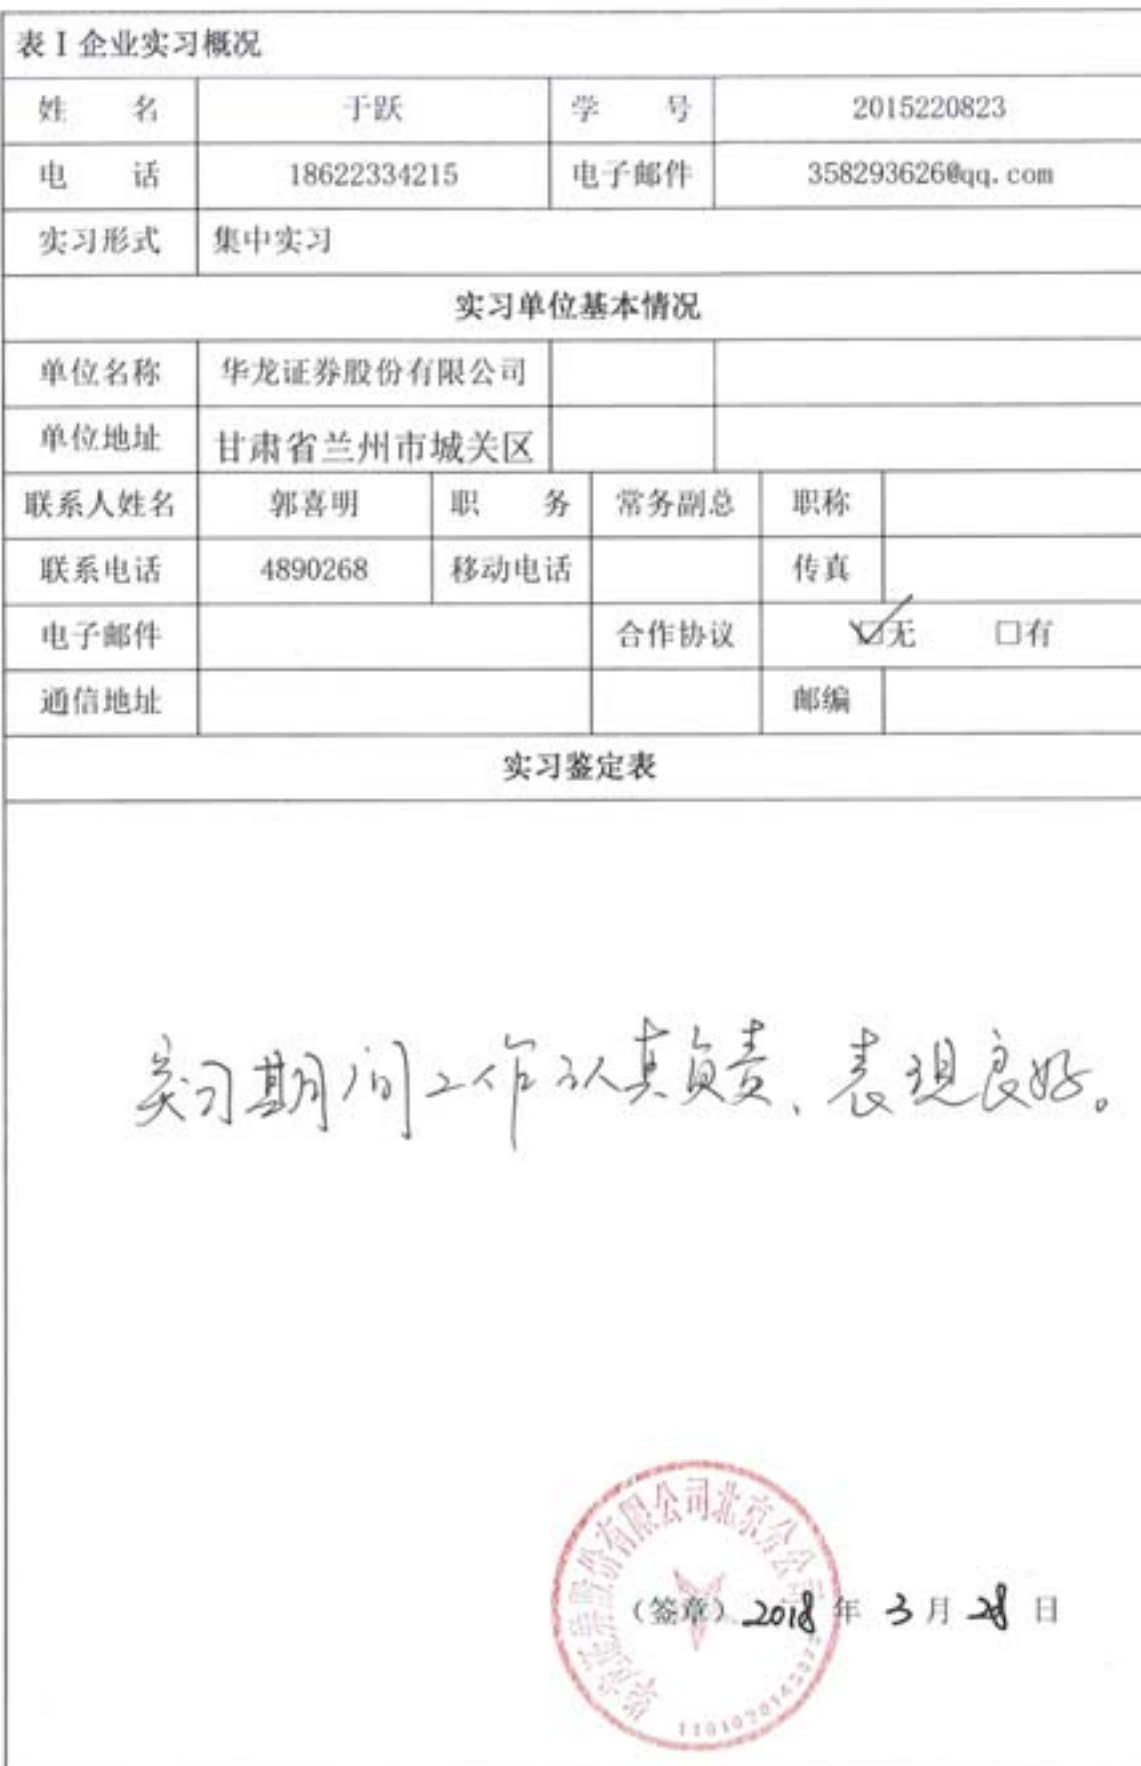 表Ⅰ企业实习概况
姓 名 于跃 学 号 2015220823
电 话 18622334215 电子邮件 358293626@qq.com
实习形式 集中实习
实习单位基本情况
单位名称 华龙证券股份有限公司
单位地址 甘肃省兰州市城关区
联系人姓名 郭喜明 职 务 常务副总 职称
联系电话 4890268 移动电话 传真
电子邮件 合作协议 ☑无 □有
通信地址 邮编
实习鉴定表
实习期间工作认真负责、表现良好。
华龙证券股份有限公司北京分公司
(签章) 2018 年 3 月 28 日